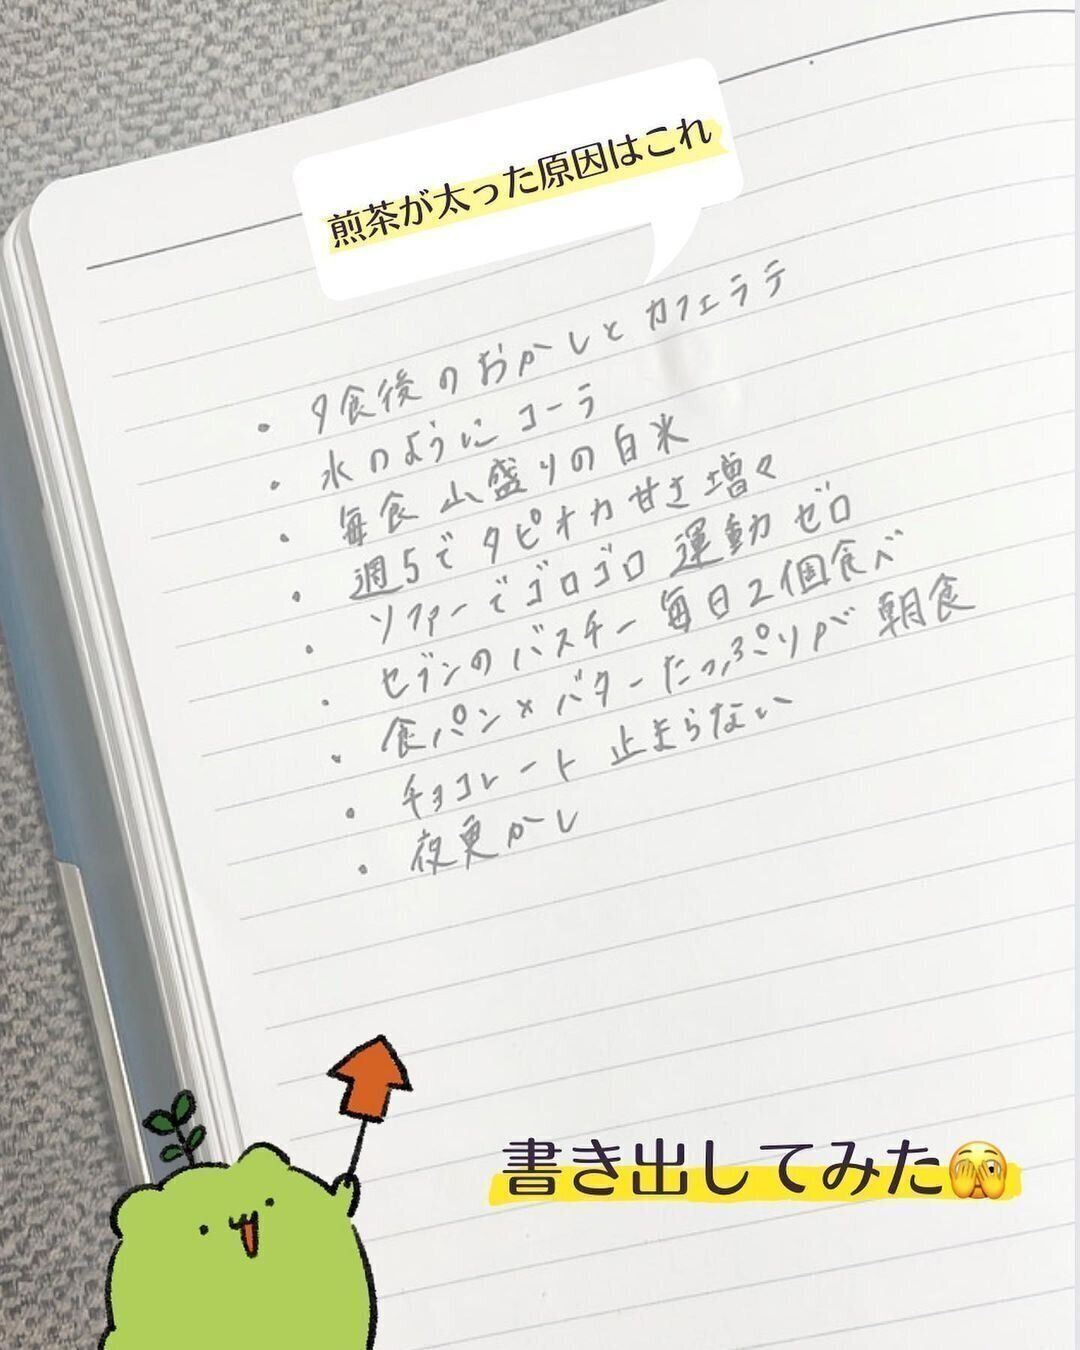 煎茶が太った原因はこれ
・夕食後のおかしとカフェラテ
・水のようにコーラ
・毎食山盛りの白米
・週5でタピオカ甘さ増々
・ソファーでゴロゴロ 運動ゼロ
・セブンのバスチー毎日2個食べ
・食パン×バターたっぷりが朝食
・チョコレート止まらない
・夜更かし
書き出してみた🫣